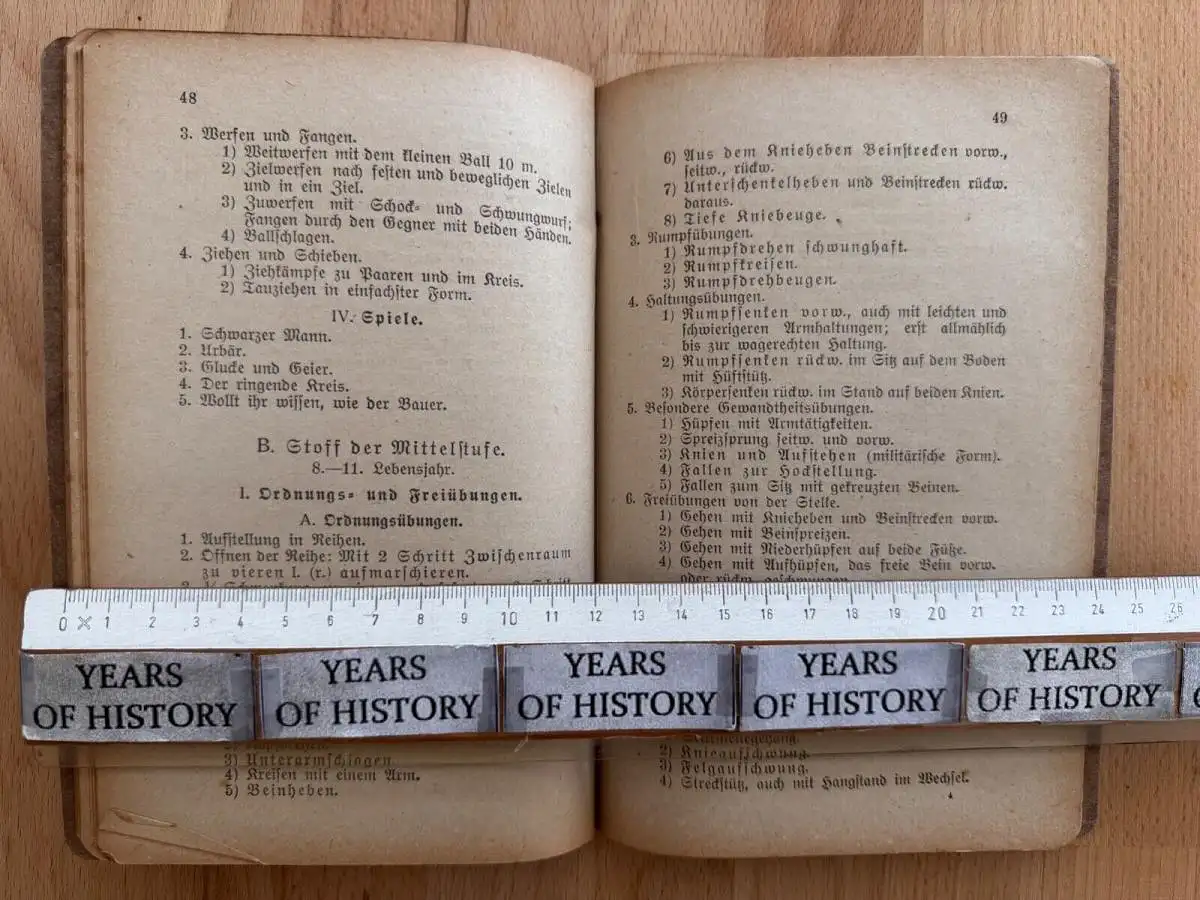 48
3. Werfen und Fangen.
1) Weitwerfen mit dem kleinen Ball 10 m.
2) Zielwerfen nach festen und beweglichen Zielen
und in ein Ziel.
3) Zuwerfen mit Schock- und Schwungwurf;
Fangen durch den Gegner mit beiden Händen.
4) Ballschlagen.
4. Ziehen und Schieben.
1) Ziehkämpfe zu Paaren und im Kreis.
2) Tauziehen in einfachster Form.
IV. Spiele.
1. Schwarzer Mann.
2. Urbär.
3. Glucke und Geier.
4. Der ringende Kreis.
5. Wollt ihr wissen, wie der Bauer.
B. Stoff der Mittelstufe.
8.—11. Lebensjahr.
I. Ordnungs- und Freiübungen.
A. Ordnungsübungen.
1. Aufstellung in Reihen.
2. Öffnen der Reihe: Mit 2 Schritt Zwischenraum
zu vieren l. (r.) aufmarschieren.
3) Unterarmschlagen.
4) Kreisen mit einem Arm.
5) Beinheben.
49
6) Aus dem Knieheben Beinstrecken vorw.,
seitw., rückw.
7) Unterschenkelheben und Beinstrecken rückw.
daraus.
8) Tiefe Kniebeuge.
3. Rumpfübungen.
1) Rumpfdrehen schwunghaft.
2) Rumpfkreisen.
3) Rumpfdrehbeugen.
4. Haltungsübungen.
1) Rumpfsenken vorw., auch mit leichten und
schwierigeren Armhaltungen; erst allmählich
bis zur wagerechten Haltung.
2) Rumpfsenken rückw. im Sitz auf dem Boden
mit Hüftstütz.
3) Körpersenken rückw. im Stand auf beiden Knien.
5. Besondere Gewandtheitsübungen.
1) Hüpfen mit Armtätigkeiten.
2) Spreizsprung seitw. und vorw.
3) Knien und Aufstehen (militärische Form).
4) Fallen zur Hockstellung.
5) Fallen zum Sitz mit gekreuzten Beinen.
6. Freiübungen von der Stelle.
1) Gehen mit Knieheben und Beinstrecken vorw.
2) Gehen mit Beinspreizen.
3) Gehen mit Niederhüpfen auf beide Füße.
4) Gehen mit Aufhüpfen, das freie Bein vorw.
oder rückw. geschwungen.
2) Knieaufschwung.
3) Felgaufschwung.
4) Streckstütz, auch mit Hangstand im Wechsel.
0 1 2 3 4 5 6 7 8 9 10 11 12 13 14 15 16 17 18 19 20 21 22 23 24 25 26
YEARS
OF HISTORY
YEARS
OF HISTORY
YEARS
OF HISTORY
YEARS
OF HISTORY
YEARS
OF HISTORY